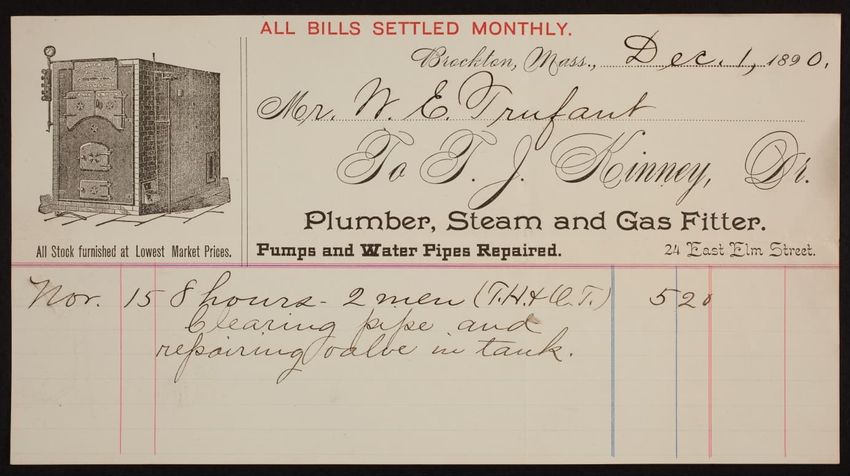 ALL BILLS SETTLED MONTHLY.
Brockton, Mass., Dec. 1, 1890.
Mr. W. E. Trufant
To T. J. Kinney, Dr.
Plumber, Steam and Gas Fitter.
All Stock furnished at Lowest Market Prices.
Pumps and Water Pipes Repaired. 24 East Elm Street.
Nov. 15 8 hours - 2 men (T.H. & O.T.) 5 20
Clearing pipe and
repairing valve in tank.